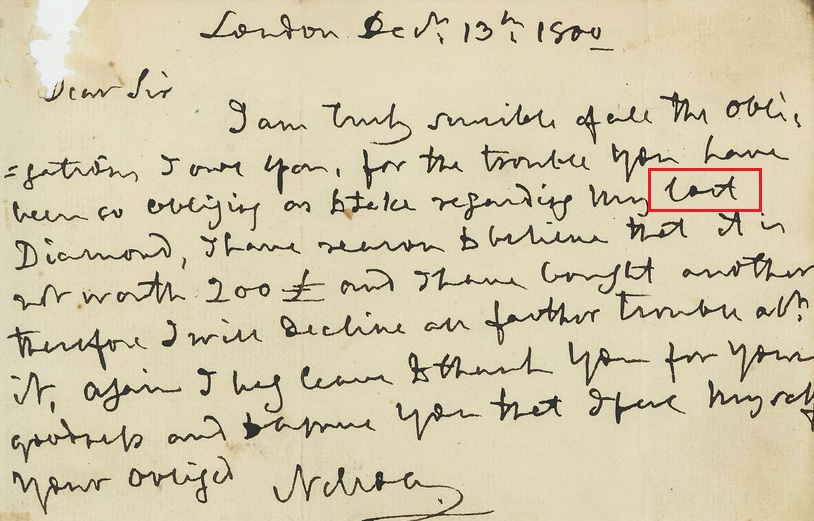 London Decr. 13th. 1800
Dear Sir
I am truly sensible of all the obli=
=gations I owe you, for the trouble you have
been so obliging as to take regarding my lost
Diamond, I have reason to believe that it is
not worth 200£ and I have bought another
therefore I will decline all farther trouble abt.
it, again I beg leave to thank you for your
goodness and to assure you that I feel myself
your obliged Nelson